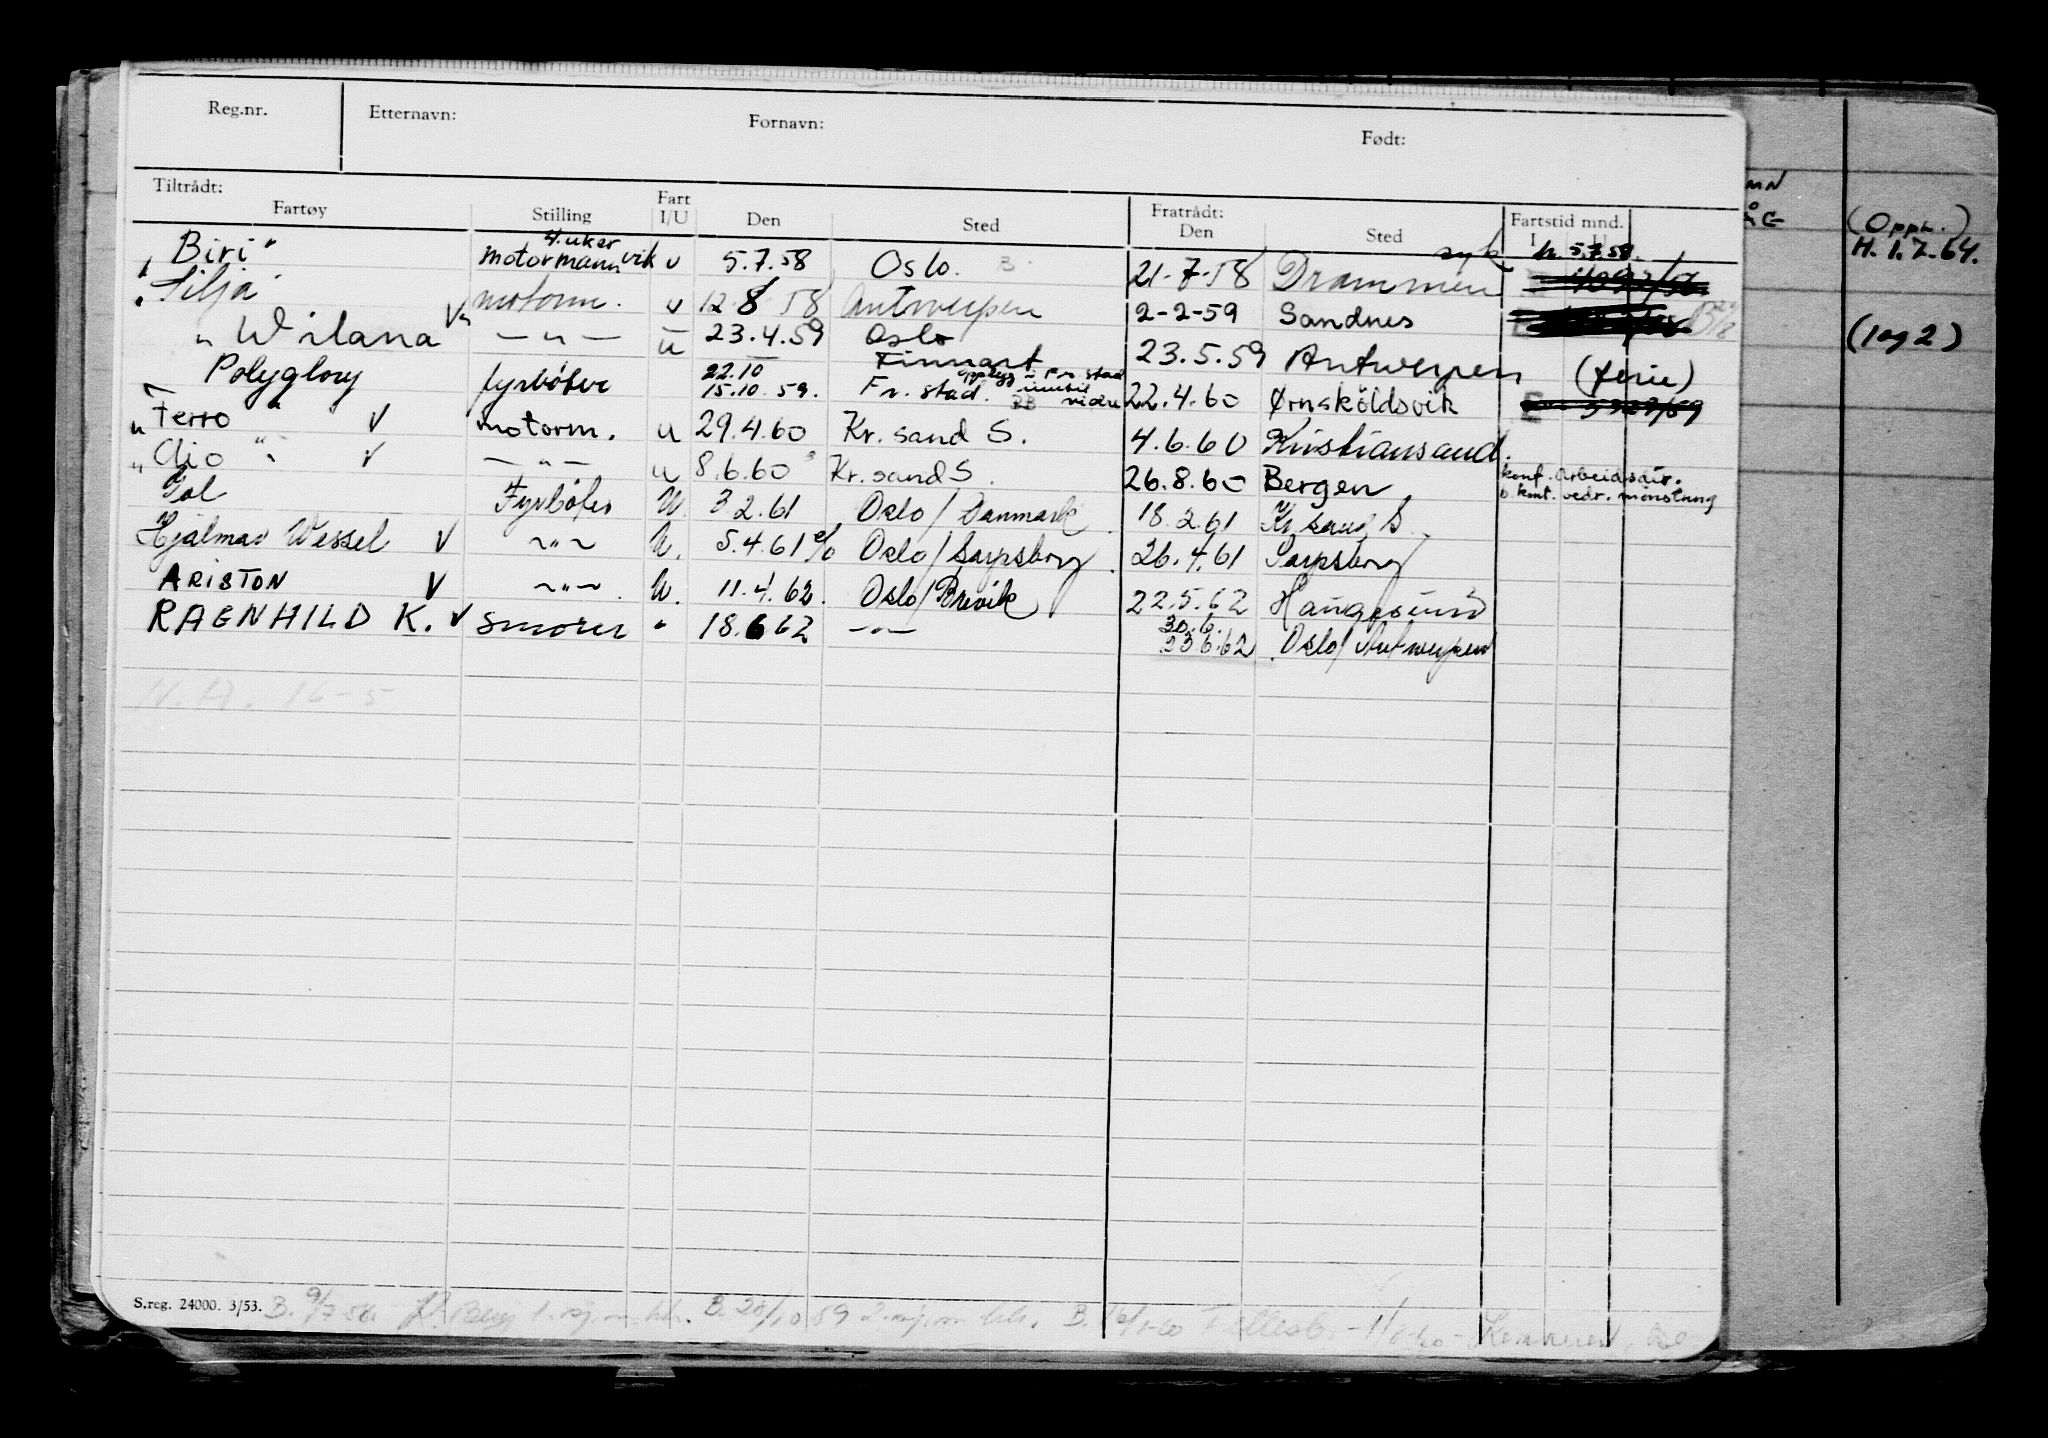 Reg.nr. Etternavn: Fornavn: Født:
Tiltrådt: Fratrådt:
Fartøy Stilling Fart I/U Den Sted Den Sted Fartstid mnd. I U
"Biri" motormann vik 4. uker u 5.7.58 Oslo. 21-7-58 Drammen syk h. 5.7.58.
"Silja" motorm. u 12-8-58 Antwerpen 2-2-59 Sandnes
" Wilana — " — u 23.4.59 Oslo 23.5.59 Antwerpen (ferie)
Polyglory fyrbøter 22.10 15.10.59. Finnart Fr. stad. opplegg i Fr. stad inntil videre 22.4.60 Ørnsköldsvik
"Ferro" V motorm. u 29.4.60 Kr. sand S. 4.6.60 Kristiansand.
"Clio" V — " — u 8.6.60 Kr. sand S. 26.8.60 Bergen konf. Arbeidsdir. o. kont. vedr. mønstring
Gol Fyrbøter U. 3.2.61 Oslo/Danmark 18.2.61 Kr sand S.
Hjalmar Wessel V ~"~ U. 5.4.61 Oslo/Sarpsborg. 26.4.61 Sarpsborg
ARISTON V ~"~ U. 11.4.62. Oslo/Brevik 22.5.62 Haugesund
RAGNHILD K. V Smører " 18.6 62 —"— 30.6. 23 6.62 Oslo/Antwerpen
N.A. 16-5
S.reg. 24000. 3/53. B. 9/7 58
B. 20/10 59
(Opph.)
H. 1.7.64.
(log 2)